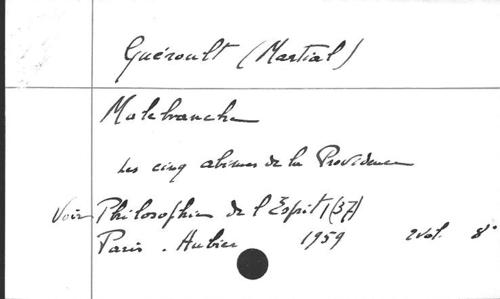 Guéroult (Martial)
Malebranche
Les cinq abimes de la Providence
Voir Philosophie de l'Esprit (37)
Paris. Aubier 1959 2 vol. 8°